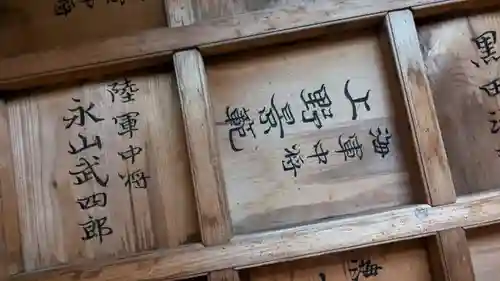 海軍中将
上野景範
陸軍中将
永山武四郎
黒田清